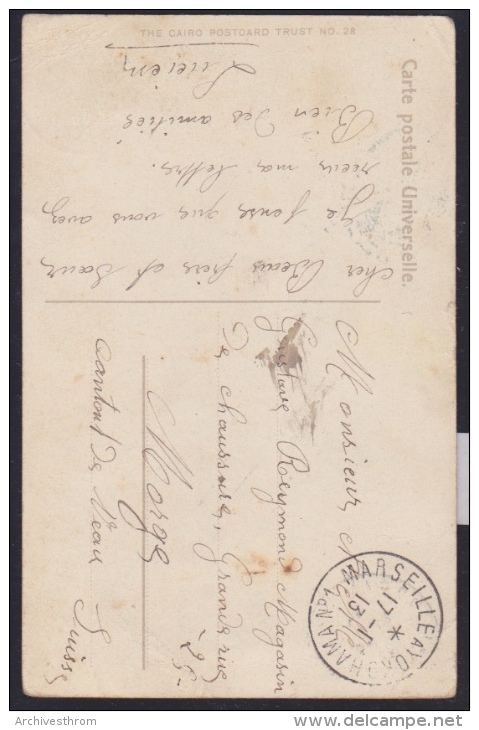 THE CAIRO POSTCARD TRUST NO. 28
Carte postale Universelle.
Cher Beau frère et Sœur
Je pense que vous avez
reçu ma lettre.
Bien des amitiés
Lucien
Monsieur
Gustave Reymond Magasin
de chaussure, Grande rue
25
Morges
Canton de Veau Suisse
MARSEILLE A YOKOHAMA Nº 1
17
13
Archivesthrom
www.delcampe.net